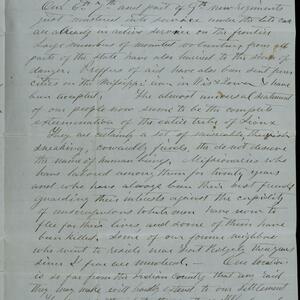 Our 6th, 7th and part of 9th new regiments
just mustered into service under the late call
are already in active service on the frontier
Large numbers of mounted volunteers from all
parts of the state have also hurried to the scene of
danger. Proffers of aid have also been sent from
cities on the Mississippi river in Wis & Iowa, & have
been accepted. The almost universal sentiment
of our people now seems to be the complete
extermination of the entire tribe of Sioux
They are certainly a set of miserable,
sneaking, cowardly fiends, who do not deserve
the name of human beings. Missionaries who
have labored among them for twenty years
and who have always been their best friends
guarding their interests against the cupidity
of unscrupulous white men have now to
flee for their lives and some of them have
been killed. Some of our former neighbors
who went to reside near Fort Ridgely two years
since & five are murdered. — Our location
is so far from the Indian Country that any raid
they may make will hardly extend to our settlement